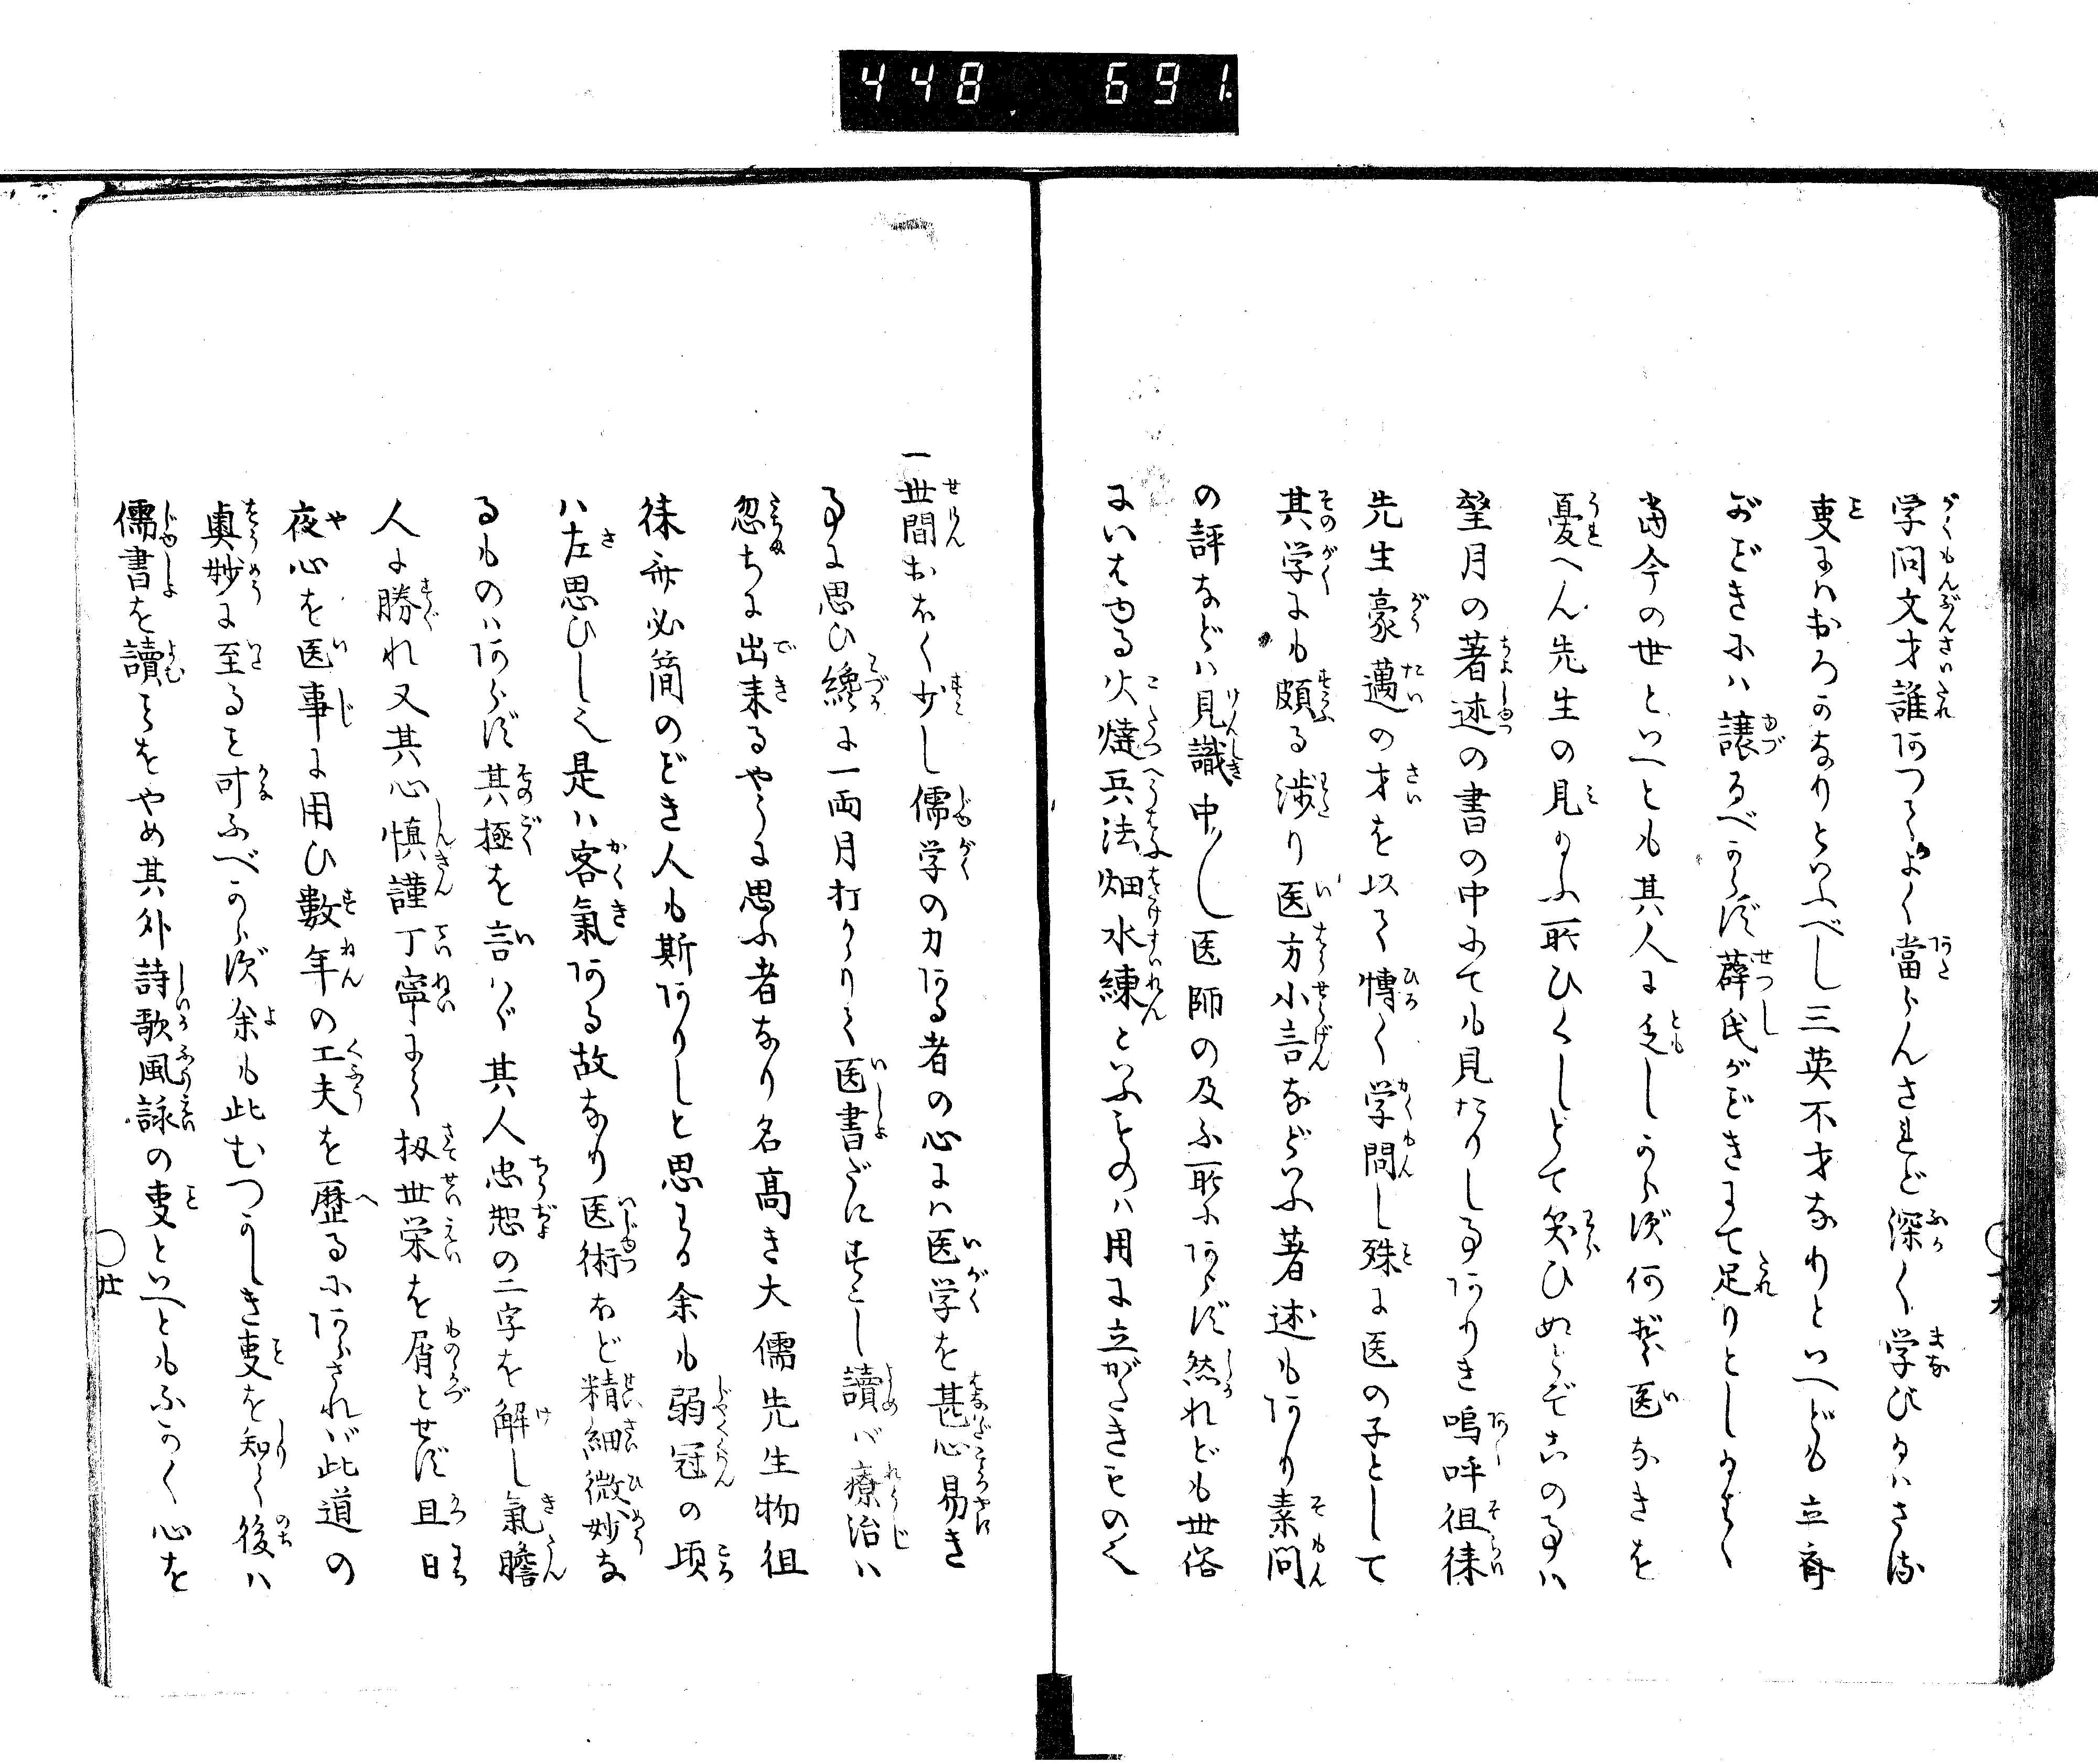 448 691
学問文才誰あつてかよく當らんされど深く学び給はざる
事にハおろかなりといふべし三英不才なりといへども立齊
ごときにハ讓るべからず薛氏がごきにて足りとし給はく
当今の世といへとも其人に乏しからず何ぞ医なきを
憂へん先生の見給ふ所ひくしとて笑ひぬらぞ右の事ハ
望月の著述の書の中にても見たりし事ありき嗚呼徂徠
先生豪邁の才を以て博く学問し殊に医の子として
其学にも頗る渉り医方小言などいふ著述もあり素問
の評などハ見識中〳〵し医師の及ふ所にあらず然れども世俗
にいはゆる火燵兵法畑水練といふものハ用に立がたきもの也
一世間おほく少し儒学の力ある者の心にハ医学を甚心易き
事に思ひ纔に一両月打かゝりて医書だにすこし讀バ療治ハ
忽ちに出来るやうに思ふ者なり名高き大儒先生物徂
徠並必簡のごとき人も斯ありしと思はる余も弱冠の頃
ハ左思ひし也是ハ客氣ある故なり医術ほど精細微妙な
るものハあらず其極を言ハヾ其人忠恕の二字を解し氣膽
人に勝れ又其心慎謹丁寧にて扨世栄を屑とせず且日
夜心を医事に用ひ數年の工夫を歴るにあらされバ此道の
奥妙に至ると可ふべからず余も此むつかしき事を知て後ハ
儒書を讀ことをやめ其外詩歌風詠の事といへともふかく心を
廿